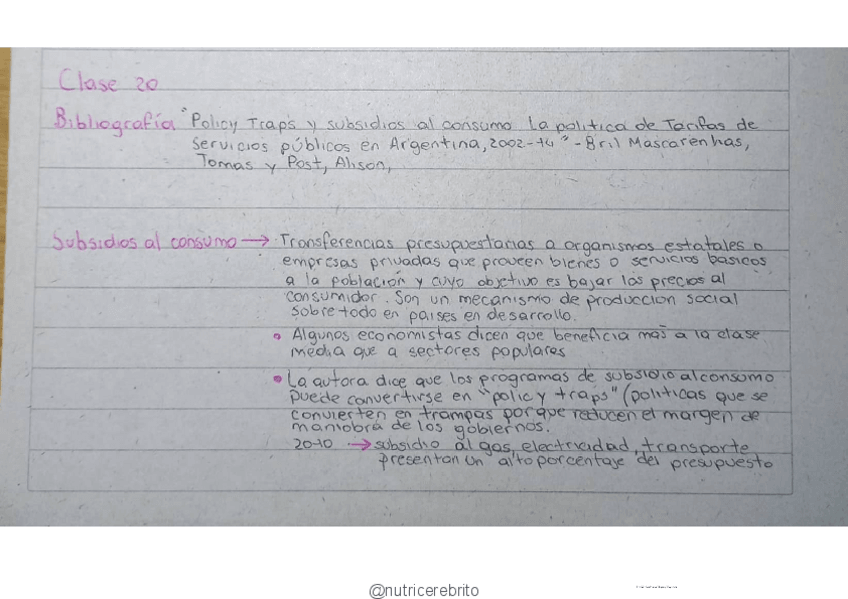 Clase 20
Bibliografía "Policy Traps y subsidios al consumo La politica de Tarifas de
Servicios públicos en Argentina, 2002-14" - Bril Mascarenhas,
Tomas y Post, Alison,
Subsidios al consumo → Transferencias presupuestarias a organismos estatales o
empresas privadas que proveen bienes o servicios básicos
a la población y cuyo objetivo es bajar los precios al
consumidor. Son un mecanismo de produccion social
sobre todo en paises en desarrollo.
• Algunos economistas dicen que beneficia mas a la clase
media que a sectores populares
• La autora dice que los programas de subsidio al consumo
puede convertirse en "policy traps" (politicas que se
convierten en trampas porque reducen el margen de
maniobra de los gobiernos.
2010 → subsidio al gas, electricidad, transporte
presentan un alto porcentaje del presupuesto
@nutricerebrito